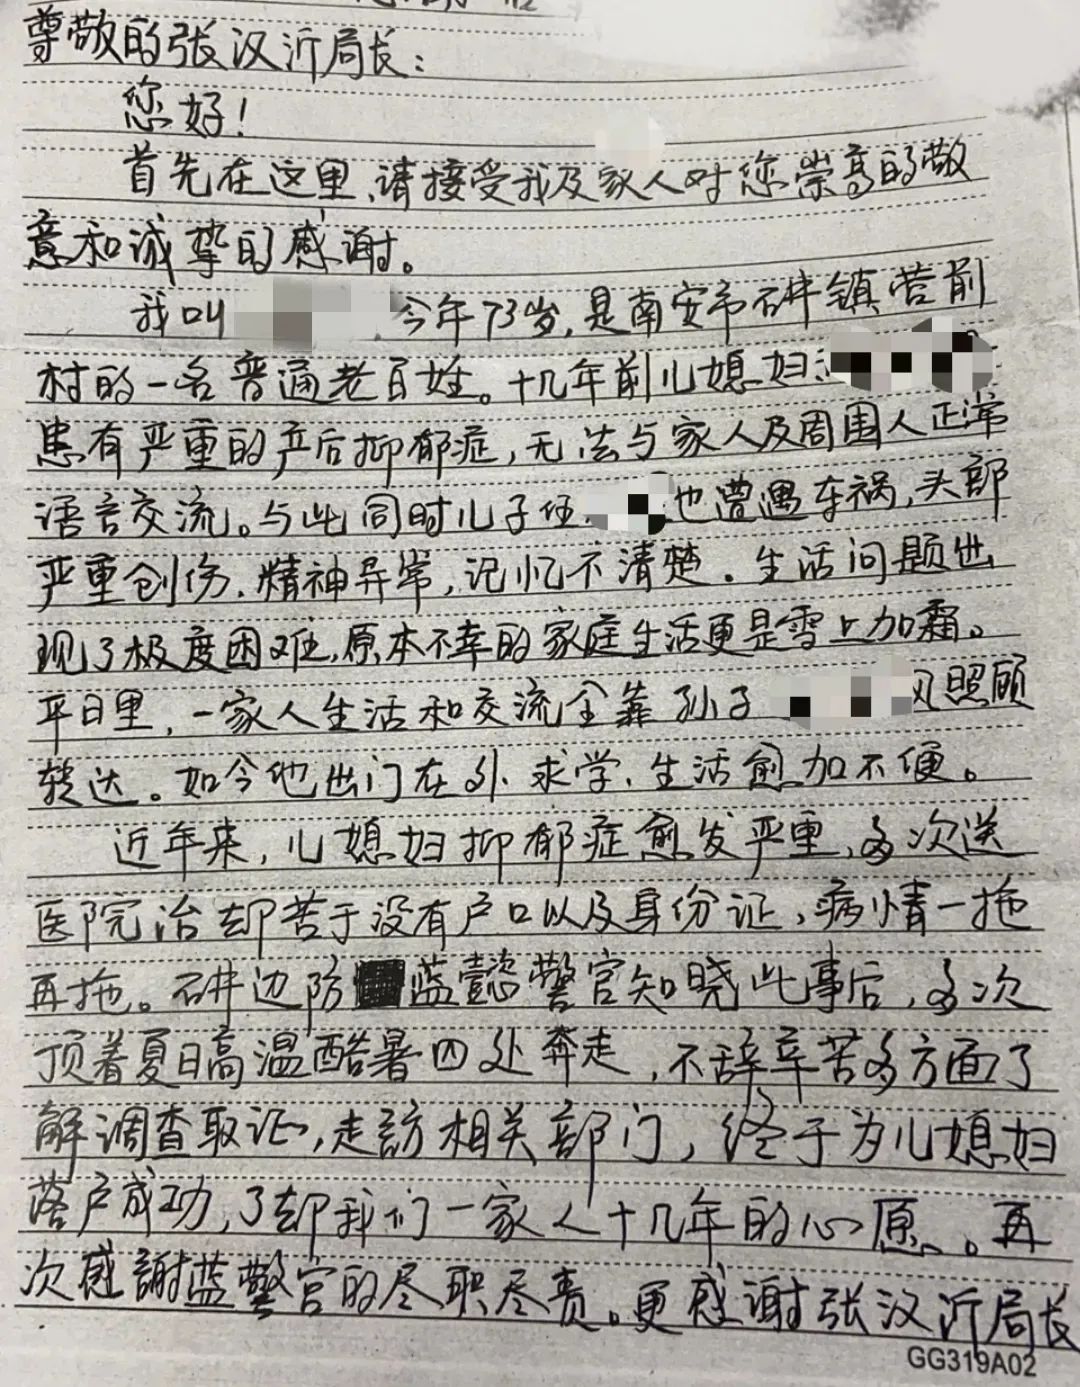 尊敬的张汉沂局长：
您好！
首先在这里，请接受我及家人对您崇高的敬
意和诚挚的感谢。
我叫 今年73岁，是南安市石井镇营前
村的一名普通老百姓。十几年前儿媳妇
患有严重的产后抑郁症，无法与家人及周围人正常
语言交流。与此同时儿子 也遭遇车祸，头部
严重创伤，精神异常，记忆不清楚。生活问题出
现了极度困难，原本不幸的家庭生活更是雪上加霜。
平日里，一家人生活和交流全靠孙子 照顾
转达。如今他出门在外求学，生活愈加不便。
近年来，儿媳妇抑郁症愈发严重，多次送
医院治却苦于没有户口以及身份证，病情一拖
再拖。石井边防 蓝懿警官知晓此事后，多次
顶着夏日高温酷暑四处奔走，不辞辛苦多方面了
解调查取证，走訪相关部门，终于为儿媳妇
落户成功，了却我们一家人十几年的心愿。再
次感謝蓝警官的尽职尽责。更感谢张汉沂局长
GG319A02